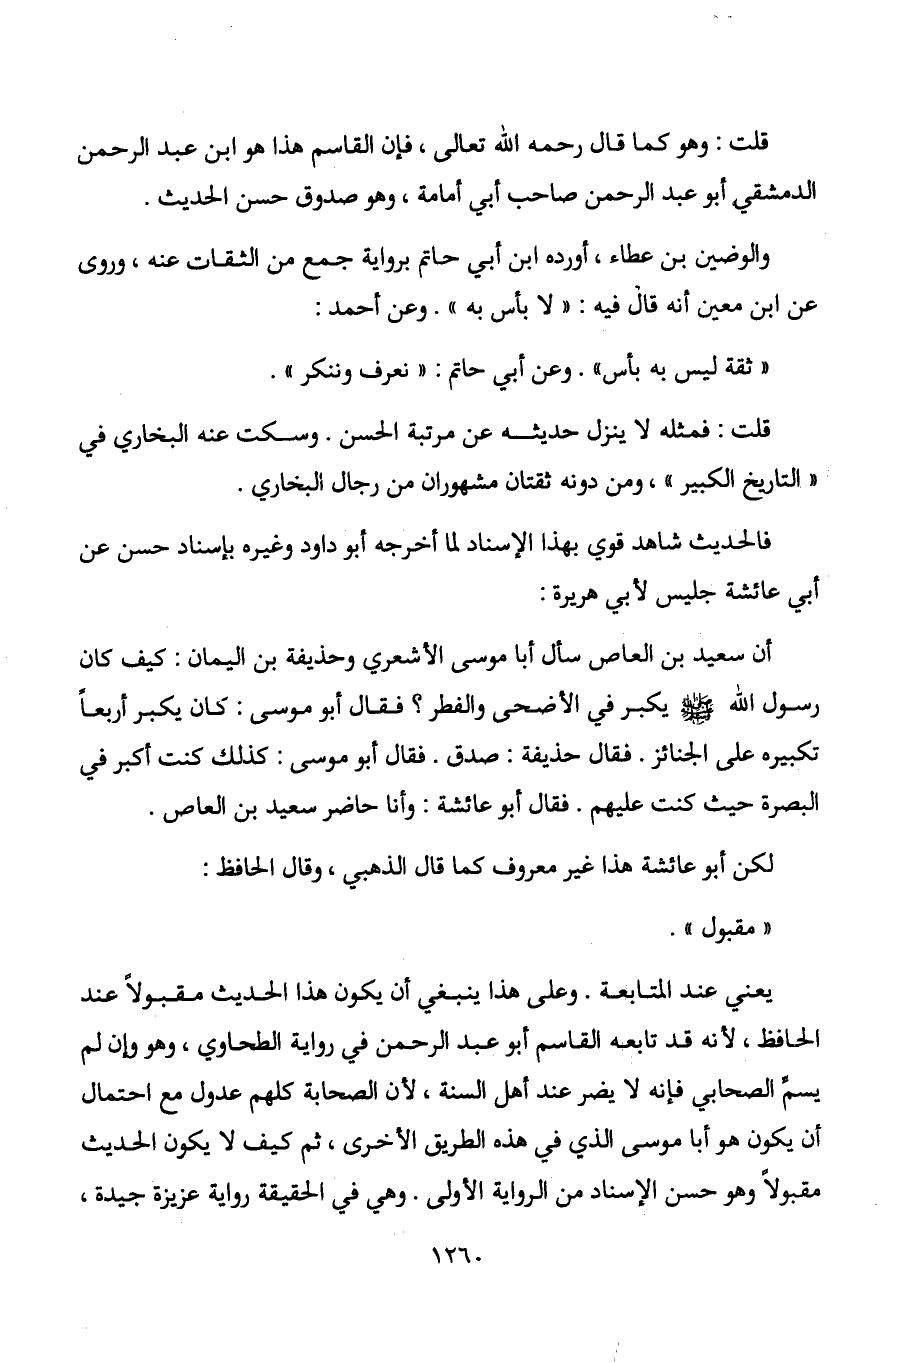 قلت : وهو كما قال رحمه الله تعالى ، فإن القاسم هذا هو ابن عبد الرحمن
الدمشقي أبو عبد الرحمن صاحب أبي أمامة ، وهو صدوق حسن الحديث .
والوضين بن عطاء ، أورده ابن أبي حاتم برواية جمع من الثقات عنه ، وروى
عن ابن معين أنه قال فيه : « لا بأس به » . وعن أحمد :
« ثقة ليس به بأس» . وعن أبي حاتم : « نعرف وننكر » .
قلت : فمثله لا ينزل حديثه عن مرتبة الحسن . وسكت عنه البخاري في
« التاريخ الكبير » ، ومن دونه ثقتان مشهوران من رجال البخاري .
فالحديث شاهد قوي بهذا الإسناد لما أخرجه أبو داود وغيره بإسناد حسن عن
أبي عائشة جليس لأبي هريرة :
أن سعيد بن العاص سأل أبا موسى الأشعري وحذيفة بن اليمان : كيف كان
رسول الله ﷺ يكبر في الأضحى والفطر ؟ فقال أبو موسى : كان يكبر أربعاً
تكبيره على الجنائز . فقال حذيفة : صدق . فقال أبو موسى : كذلك كنت أكبر في
البصرة حيث كنت عليهم . فقال أبو عائشة : وأنا حاضر سعيد بن العاص .
لكن أبو عائشة هذا غير معروف كما قال الذهبي ، وقال الحافظ :
« مقبول » .
يعني عند المتابعة . وعلى هذا ينبغي أن يكون هذا الحديث مقبولاً عند
الحافظ ، لأنه قد تابعه القاسم أبو عبد الرحمن في رواية الطحاوي ، وهو وإن لم
يسمِّ الصحابي فإنه لا يضر عند أهل السنة ، لأن الصحابة كلهم عدول مع احتمال
أن يكون هو أبا موسى الذي في هذه الطريق الأخرى ، ثم كيف لا يكون الحديث
مقبولاً وهو حسن الإسناد من الرواية الأولى . وهي في الحقيقة رواية عزيزة جيدة ،
١٢٦٠